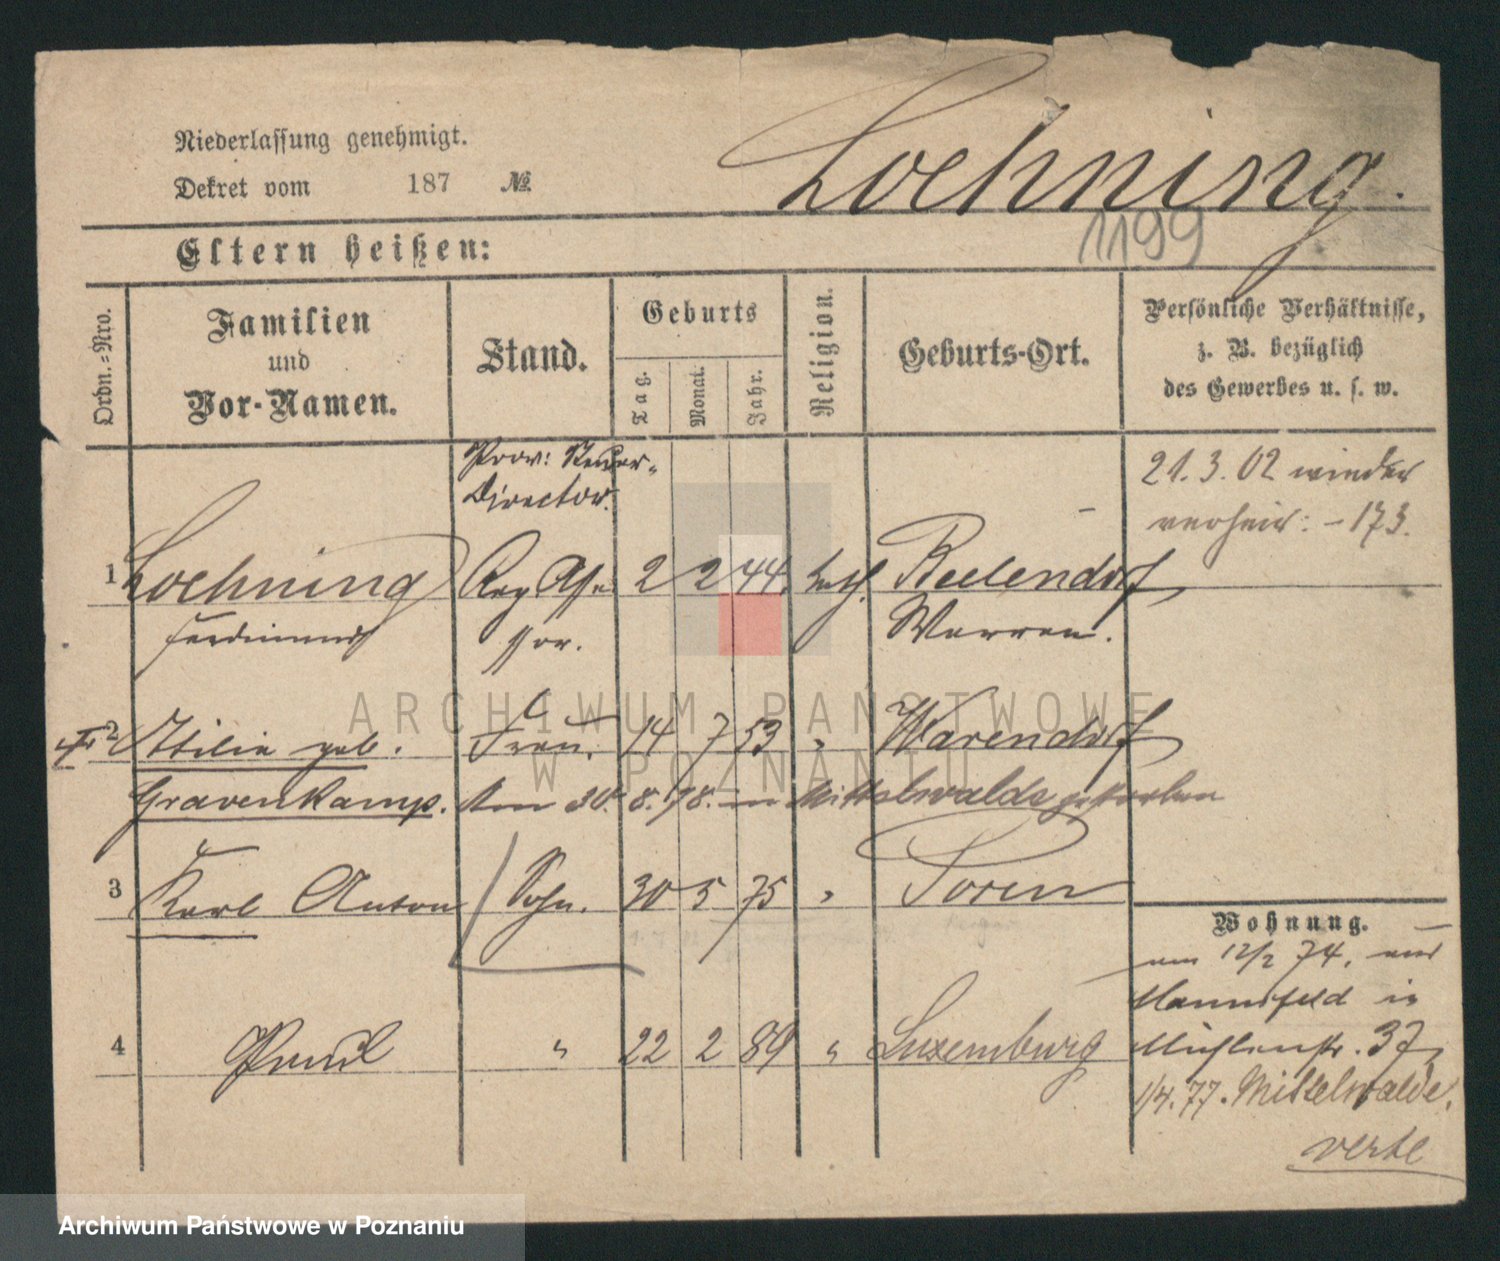 Niederlassung genehmigt.
Dekret vom 187 №
Loehning.
1199
Eltern heißen:
Ordn.=Nro.
Familien
und
Vor-Namen.
Stand.
Geburts
Tag.
Monat.
Jahr.
Religion.
Geburts-Ort.
Persönliche Verhältnisse,
z. B. bezüglich
des Gewerbes u. s. w.
Prov: Steuer-
Director.
21.3.02 wieder
verheir: - 173.
1 Loehning Reg Asse 2 2 44. kath. Beelendorf
Ferdinand ssor. Warren.
2 Ottilie geb. Frau. 14 7 53 " Warendorf
Gravenkamp. Am 30. 8. 78. in Mittelwalde gestorben
3 Karl Anton Sohn. 30 5 75 " Posen
Wohnung.
am 12/2 74. aus
Mannsfeld in
Mühlenstr. 37,
4 Paul " 22 2 89 " Luxemburg
1/4. 77. Mittelwalde.
verte
ARCHIWUM PAŃSTWOWE
W POZNANIU
Archiwum Państwowe w Poznaniu